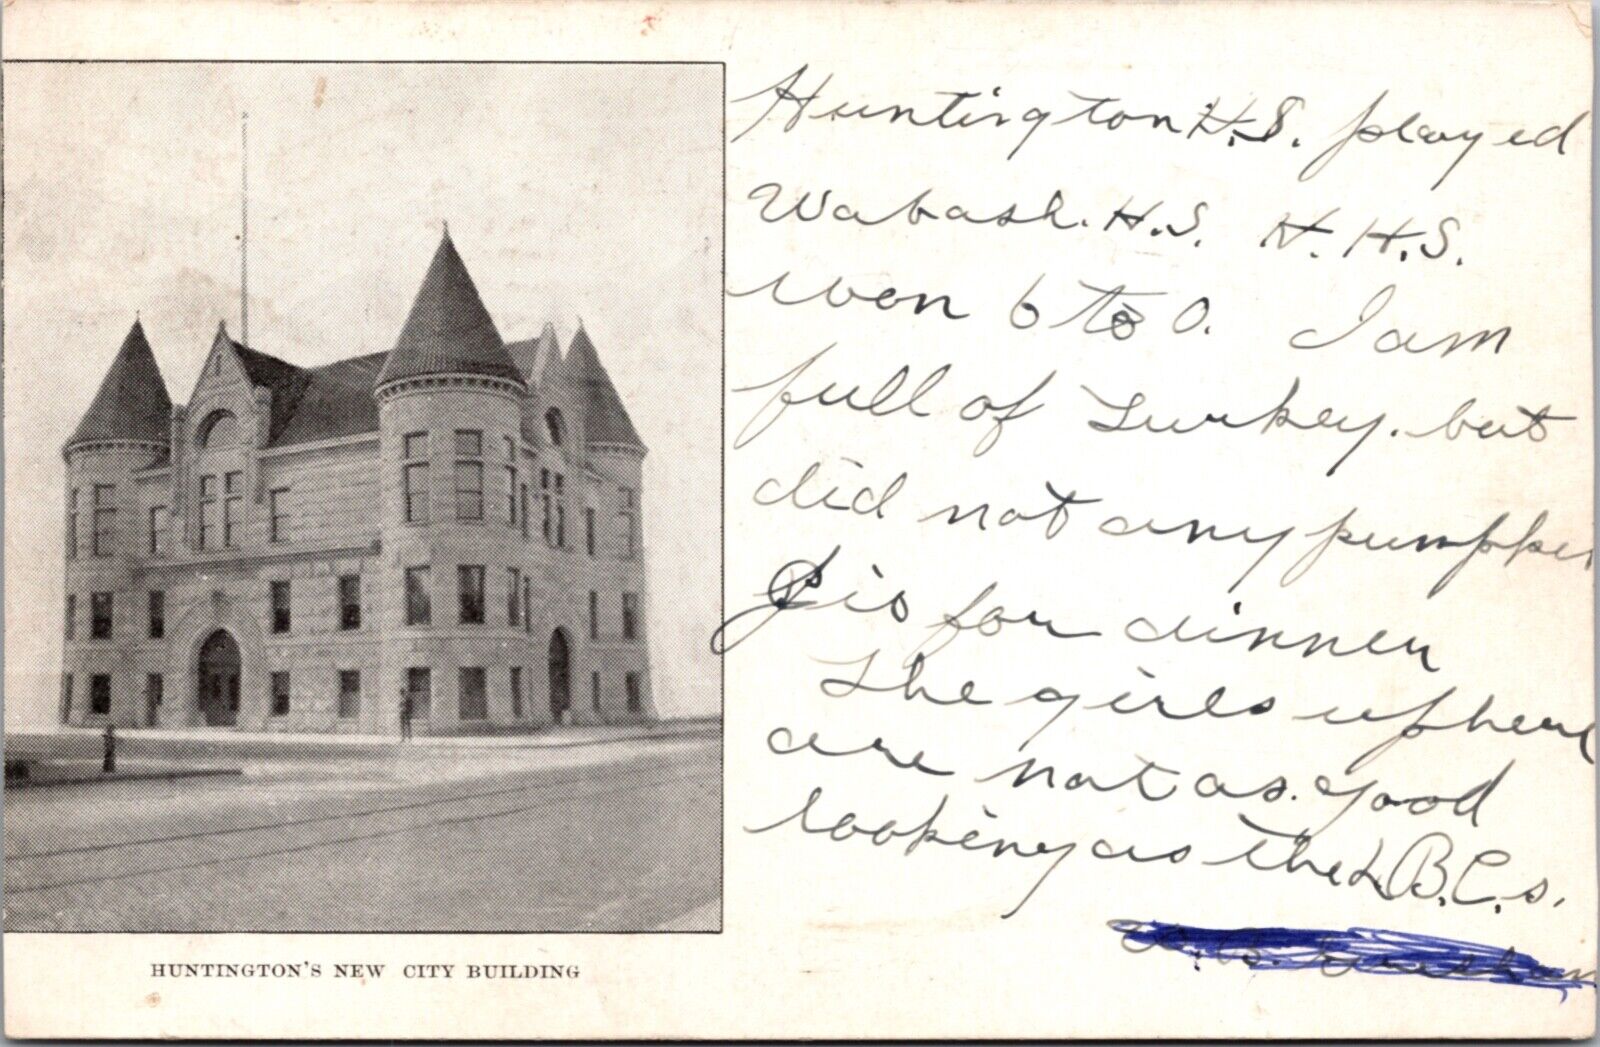 Huntington H.S. played
Wabash. H.S. H.H.S.
won 6 to 0. I am
full of Turkey. but
did not any pumpkin
Pis for dinner
The girls up here
are not as good
looking as the L.B.C.s.
HUNTINGTON'S NEW CITY BUILDING